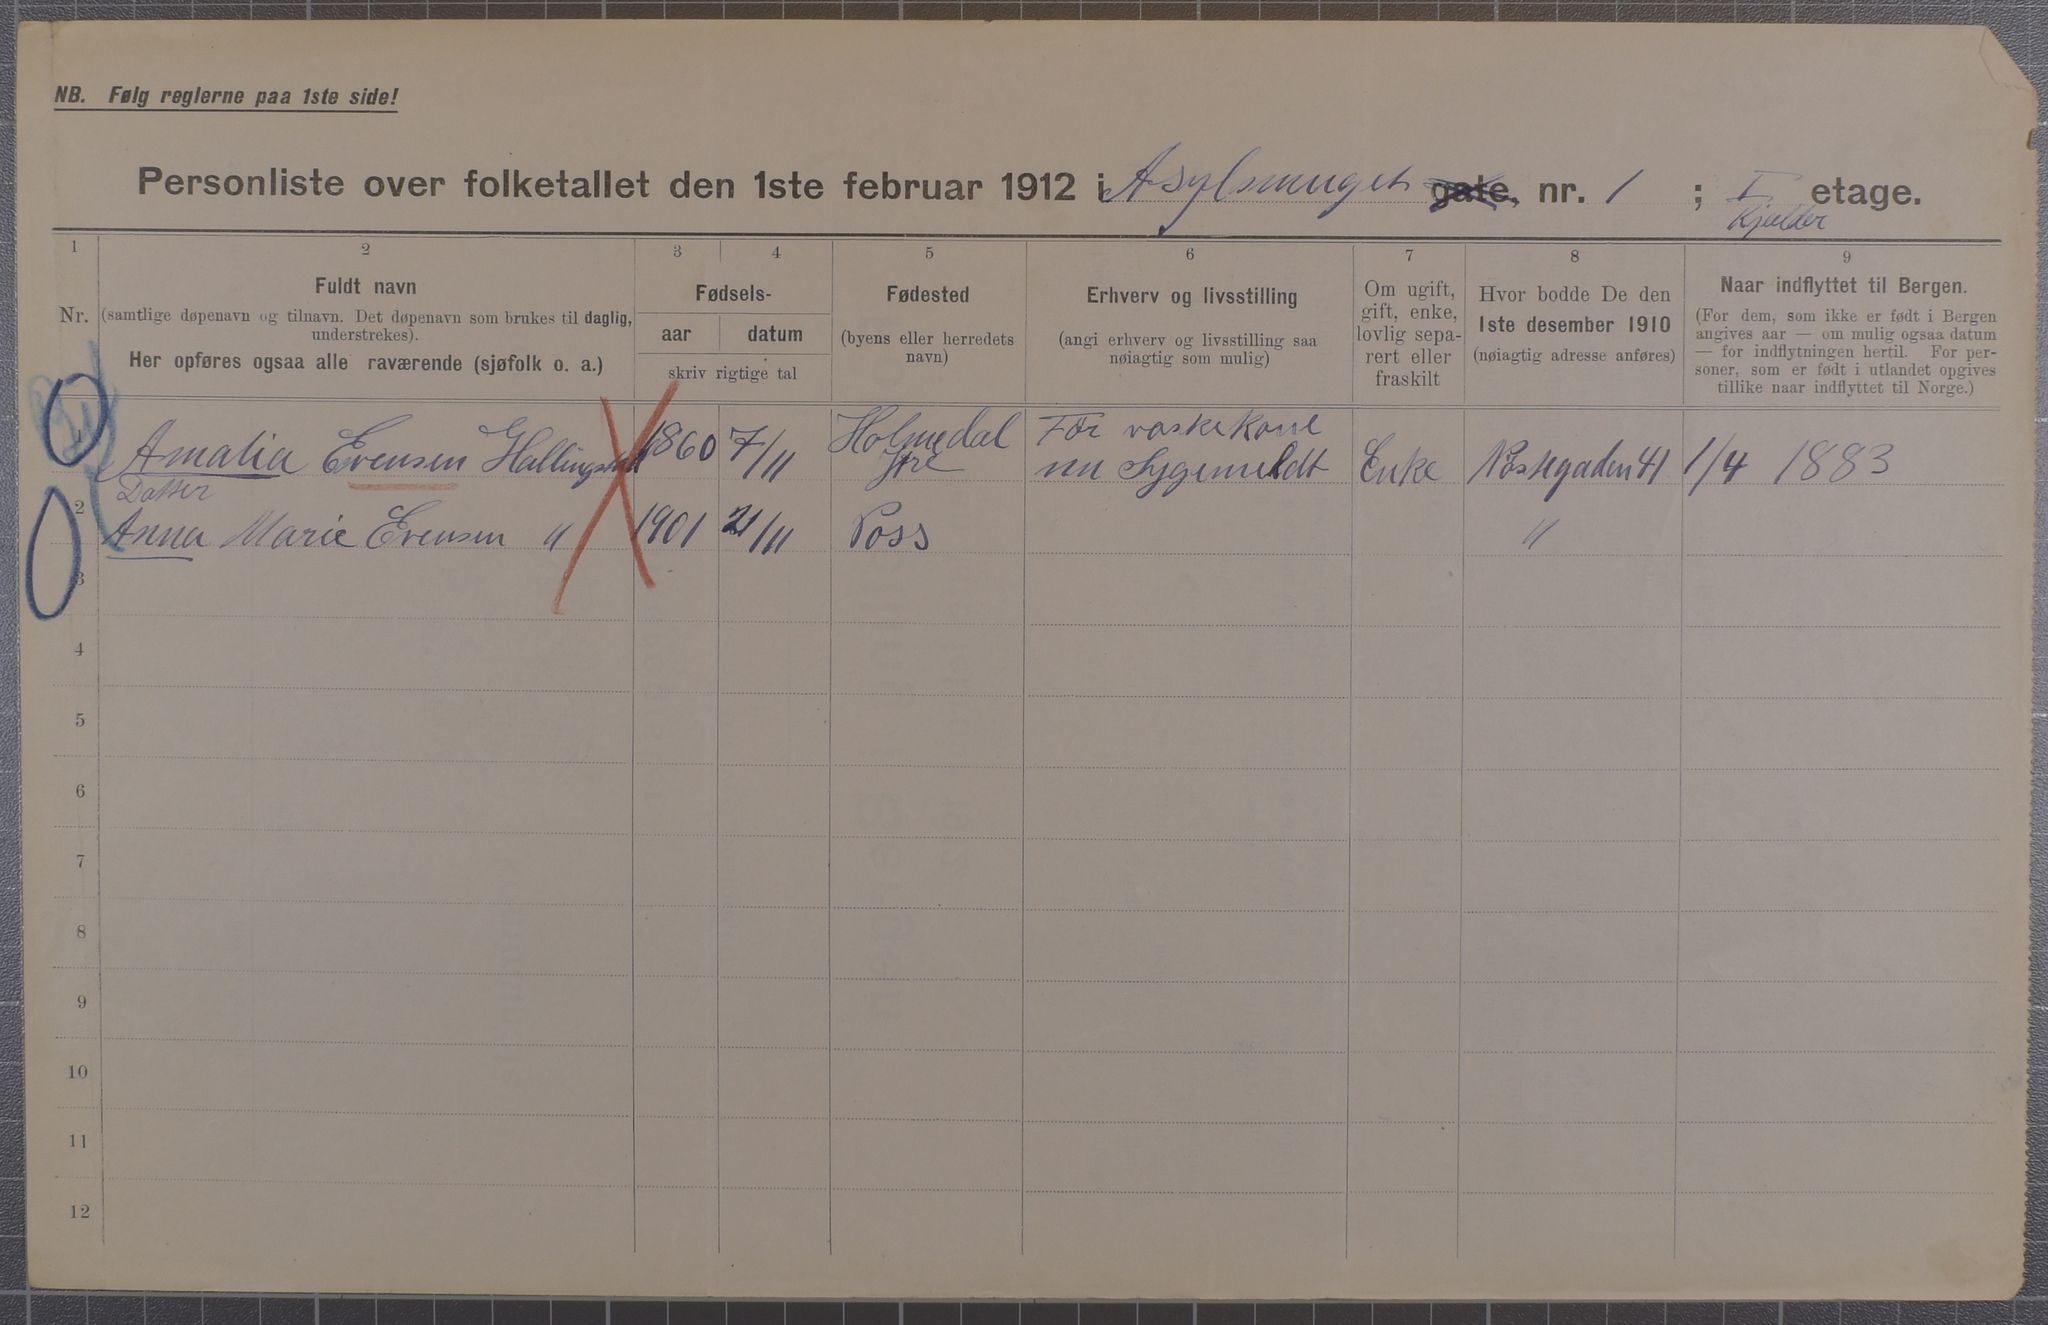 NB. Følg reglerne paa 1ste side!
Personliste over folketallet den 1ste februar 1912 i Asylsmuget gate, nr. 1 ; I etage.
Kjælder
1 2 3 4 5 6 7 8 9
Nr.
Fuldt navn
(samtlige døpenavn og tilnavn. Det døpenavn som brukes til daglig, understrekes).
Her opføres ogsaa alle raværende (sjøfolk o. a.)
Fødsels-
aar datum
skriv rigtige tal
Fødested
(byens eller herredets navn)
Erhverv og livsstilling
(angi erhverv og livsstilling saa nøiagtig som mulig)
Om ugift, gift, enke, lovlig separert eller fraskilt
Hvor bodde De den 1ste desember 1910
(nøiagtig adresse anføres)
Naar indflyttet til Bergen.
(For dem, som ikke er født i Bergen angives aar — om mulig ogsaa datum — for indflytningen hertil. For personer, som er født i utlandet opgives tillike naar indflyttet til Norge.)
1 Amalia Evensen Hallingstad 1860 7/11 Holmedal Før vaskekone
nu Sygemeldt Enke Nøstegaden 41 1/4 1883
Datter
2 Anna Marie Evensen " 1901 21/11 Voss "
3
4
5
6
7
8
9
10
11
12